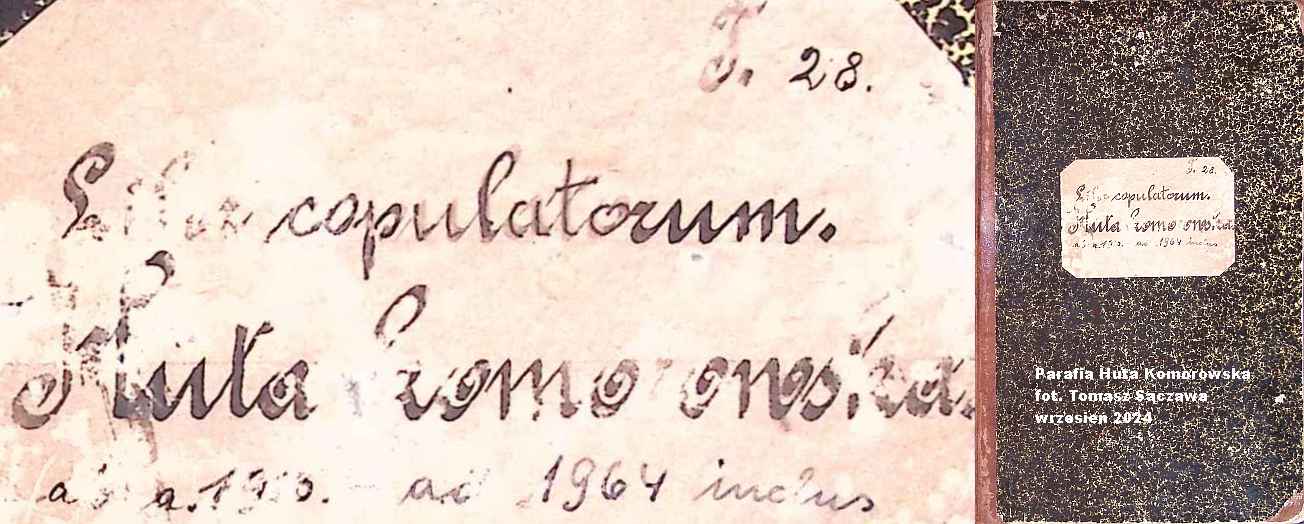 T. 28.
Liber copulatorum.
Huta Komorowska.
ab a. - ad 1964 inclus
T. 28.
Liber copulatorum.
Huta Komorowska
ab a. - ad 1964 inclus
Parafia Huta Komorowska
fot. Tomasz Sączawa
wrzesień 2024